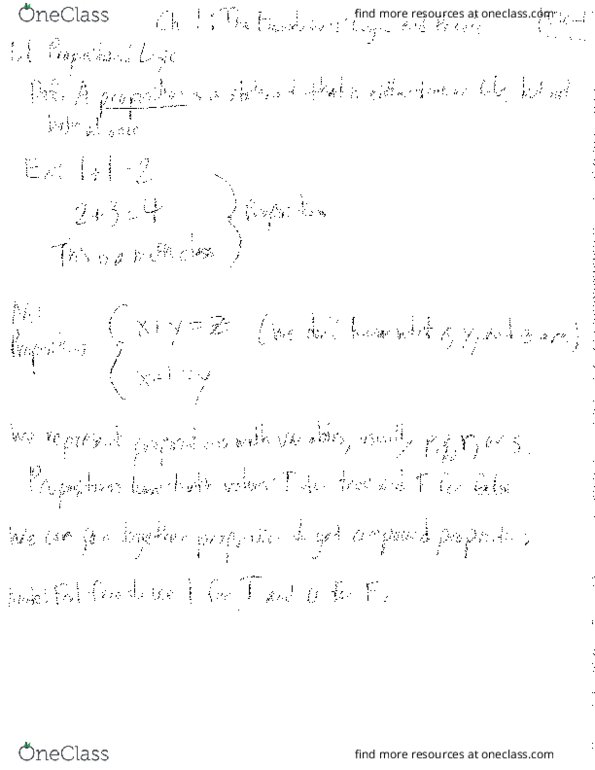 OneClass find more resources at oneclass.com
Ch 1: The Foundations: Logic and Proofs
1.1 Propositional Logic
Def: A proposition is a statement that is either true or false, but not
both at once
Ex: 1+1=2
2+3=4
This is a math class
Propositions
Not
Propositions
x+y=z (We don't know what x, y, and z are)
x+1=y
We represent propositions with variables, usually p, q, r, or s.
Propositions have truth values: T for true and F for false
We can join together propositions to get compound propositions
use 1 for T and 0 for F.
OneClass find more resources at oneclass.com